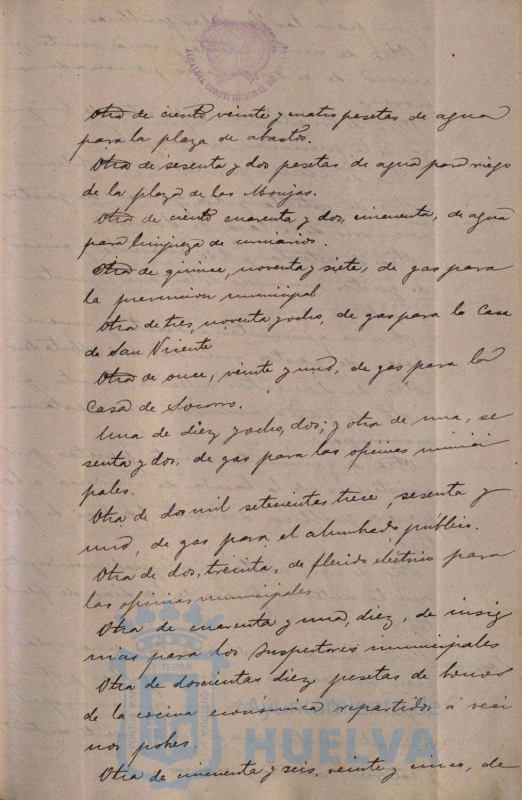 ALCALDIA CONSTITUCIONAL DE
Otra de ciento veinte y cuatro pesetas de agua
para la plaza de abastos.
Otra de sesenta y dos pesetas de agua para riego
de la plaza de las Monjas.
Otra de ciento cuarenta y dos, cincuenta, de agua
para limpieza de urinarios.
Otra de quince, noventa y siete, de gas para
la prevencion municipal
Otra de tres, noventa y ocho, de gas para la Casa
de San Vicente
Otra de once, veinte y uno, de gas para la
Casa de Socorro.
Una de diez y ocho, dos; y otra de una, se
senta y dos, de gas para las oficinas munici
pales.
Otra de dos mil setecientas trece, sesenta y
uno, de gas para el alumbrado público.
Otra de dos, treinta, de fluido eléctrico para
las oficinas municipales
Otra de cuarenta y una, diez, de insig
nias para los Inspectores municipales
Otra de doscientas diez pesetas de bonos
de la cocina economica repartidos á veci
nos pobres.
Otra de cincuenta y seis, veinte y cinco, de
Ayuntamiento de
HUELVA